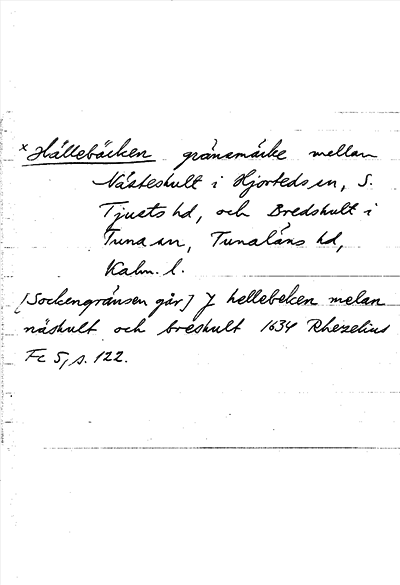 x Hällebäcken gränsmärke mellan
Näteshult i Hjorteds sn, S.
Tjusts hd, och Bredshult i
Tuna sn, Tunaläns hd,
Kalm. l.
[Sockengränsen går] J hellebeken melan
näshult och breshult 1634 Rhezelius
Fc 5, s. 122.